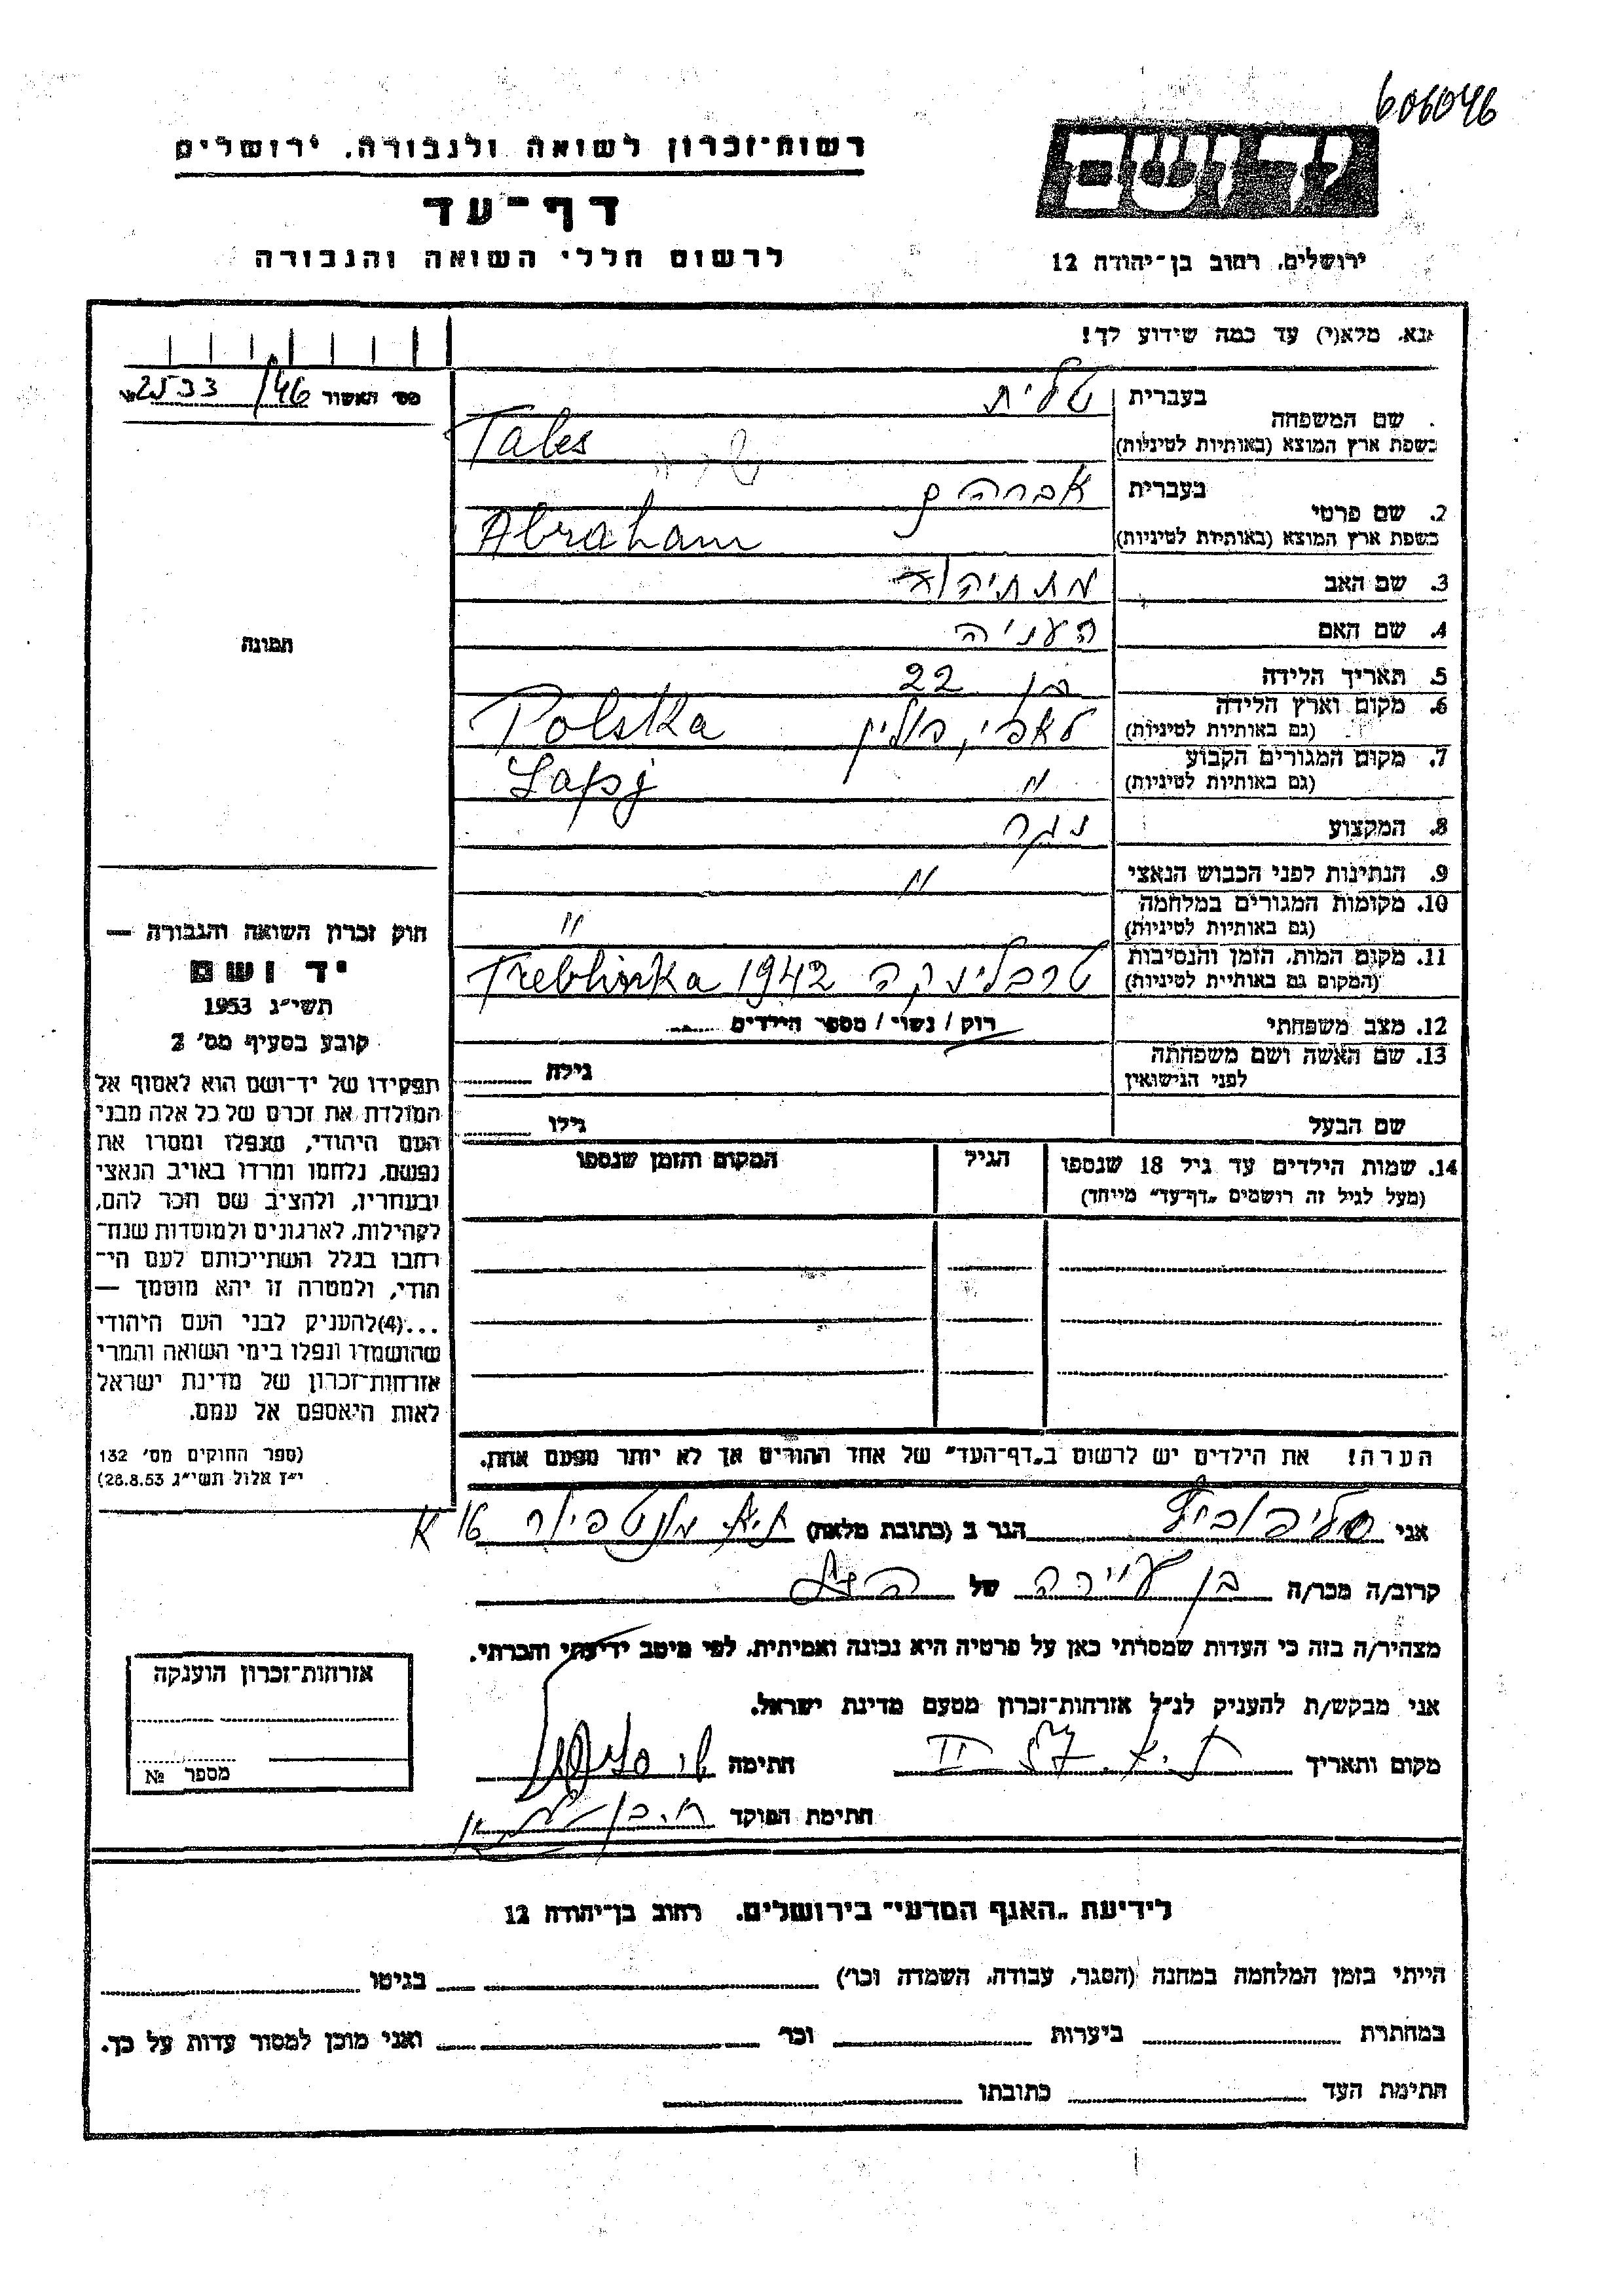 606046
רשות־זכרון לשואה ולגבורה. ירושלים
דף־עד
לרשום חללי השואה והגבורה
יד ושם
ירושלים. רחוב בן־יהודה 12
נא. מלא(י) עד כמה שידוע לך!
מס' האשור 2533/46
תמונה
חוק זכרון השואה והגבורה —
יד ושם
תשי״ג 1953
קובע בסעיף מס׳ 2
תפקידו של יד־ושם הוא לאסוף אל
המולדת את זכרם של כל אלה מבני
העם היהודי, שנפלו ומסרו את
נפשם, נלחמו ומרדו באויב הנאצי
ובעוזריו, ולהציב שם וזכר להם,
לקהילות, לארגונים ולמוסדות שנח־
רבו בגלל השתייכותם לעם הי־
הודי, ולמטרה זו יהא מוסמך —
...(4)להעניק לבני העם היהודי
שהושמדו ונפלו בימי השואה והמרי
אזרחות־זכרון של מדינת ישראל
לאות היאספם אל עמם.
(ספר החוקים מס׳ 132
י״ז אלול תשי״ג 28.8.53)
בעברית טלית
שם המשפחה
בשפת ארץ המוצא (באותיות לטיניות) Tales
בעברית אברהם
2. שם פרטי
בשפת ארץ המוצא (באותיות לטיניות) Abraham
3. שם האב מתתיהו
4. שם האם העניה
5. תאריך הלידה בן 22
6. מקום וארץ הלידה
(גם באותיות לטיניות) לאפי, פולין Polska
7. מקום המגורים הקבוע
(גם באותיות לטיניות) " Łapy
8. המקצוע נגר
9. הנתינות לפני הכבוש הנאצי "
10. מקומות המגורים במלחמה
(גם באותיות לטיניות) "
11. מקום המות, הזמן והנסיבות
(המקום גם באותיות לטיניות) טרבלינקה 1942 Treblinka
12. מצב משפחתי רווק / נשוי / מספר הילדים
13. שם האשה ושם משפחתה
לפני הנישואין גילה
שם הבעל גילו
14. שמות הילדים עד גיל 18 שנספו הגיל המקום והזמן שנספו
(מעל לגיל זה רושמים „דף־עד״ מייוחד)
הערה! את הילדים יש לרשום ב„דף־העד״ של אחד ההורים אך לא יותר מפעם אחת.
אני הגר ב (כתובת מלאה) ת״א מונטפיורי 16 א
קרוב/ה מכר/ה בן עיירה של
מצהיר/ה בזה כי העדות שמסרתי כאן על פרטיה היא נכונה ואמיתית, לפי מיטב ידיעתי והכרתי.
אני מבקש/ת להעניק לנ״ל אזרחות־זכרון מטעם מדינת ישראל.
מקום ותאריך ת.א. חתימה
חתימת הפוקד
אזרחות־זכרון הוענקה
מספר №
לידיעת „האגף המדעי״ בירושלים. רחוב בן־יהודה 12
הייתי בזמן המלחמה במחנה (הסגר, עבודה, השמדה וכו׳) בגיטו
במחתרת ביערות וכו׳ ואני מוכן למסור עדות על כך.
חתימת העד כתובתו